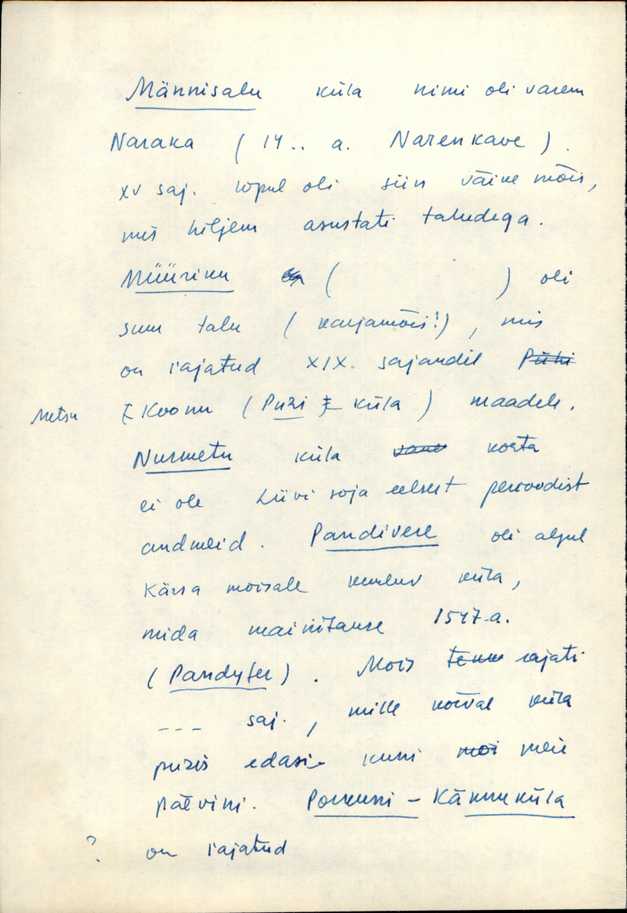 Männisalu küla nimi oli varem
Naraka (14.. a. Narenkave).
XV saj. lõpul oli siin väike mõis,
mis hiljem asustati taludega.
Müüriku ( ) oli
suur talu (karjamõis!), mis
on rajatud XIX. sajandil Pühi
Metsa Koonu (Puri küla) maadele.
Nurmetu küla vana kohta
ei ole Liivi sõja eelsest perioodist
andmeid. Pandivere oli algul
Kärsa moisale kuuluv küla,
mida mainitakse 1547-a.
(Pandyfer). Mõis rajati
--- saj., mille kõrval küla
püsis edasi kuni moi meie
päevini. Porkuni - Kännuküla
? on rajatud